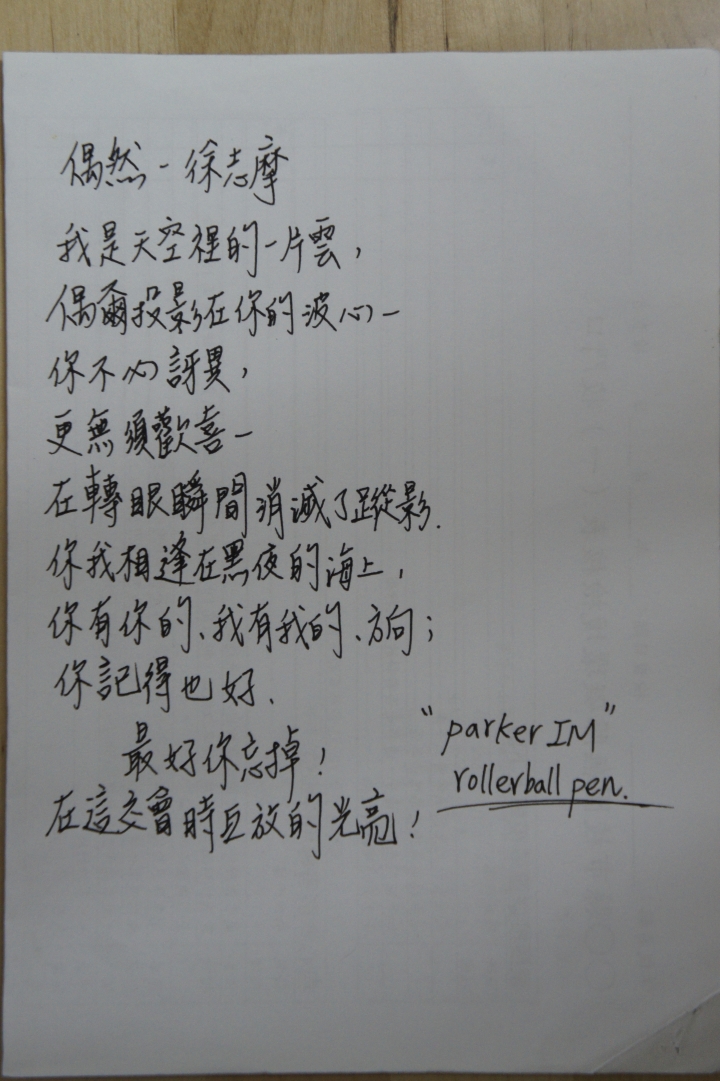 偶然-徐志摩
我是天空裡的一片雲，
偶爾投影在你的波心—
你不必訝異，
更無須歡喜—
在轉眼瞬間消滅了蹤影.
你我相逢在黑夜的海上，
你有你的、我有我的、方向；
你記得也好.
最好你忘掉！
在這交會時互放的光亮！
"parker IM"
rollerball pen.